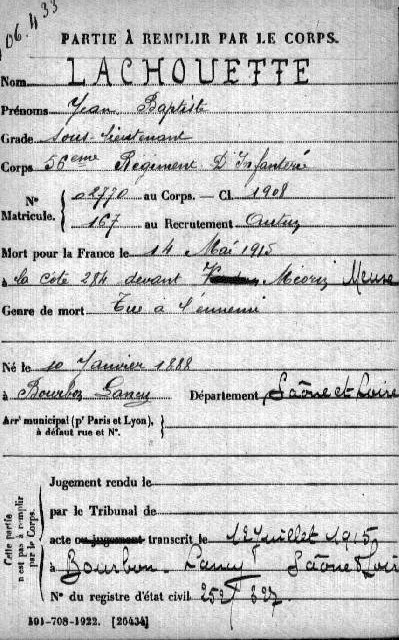 06.433
PARTIE À REMPLIR PAR LE CORPS.
Nom LACHOUETTE
Prénoms Jean Baptiste
Grade Sous-lieutenant
Corps 56eme Régiment D'Infanterie
N° Matricule. { 02770 au Corps. — Cl. 1908
167 au Recrutement Autun
Mort pour la France le 14 Mai 1915
à la cote 284 devant Meuse
Genre de mort Tué à l'ennemi
Né le 10 Janvier 1888
à Bourbon Lancy Département Saône et Loire
Arrt municipal (pr Paris et Lyon), à défaut rue et N°. }
Cette partie n'est pas à remplir par le Corps.
Jugement rendu le
par le Tribunal de
acte ou jugement transcrit le 12 Juillet 1915
à Bourbon-Lancy Saône & Loire
N° du registre d'état civil 252/327.
101-708-1922. [26434]